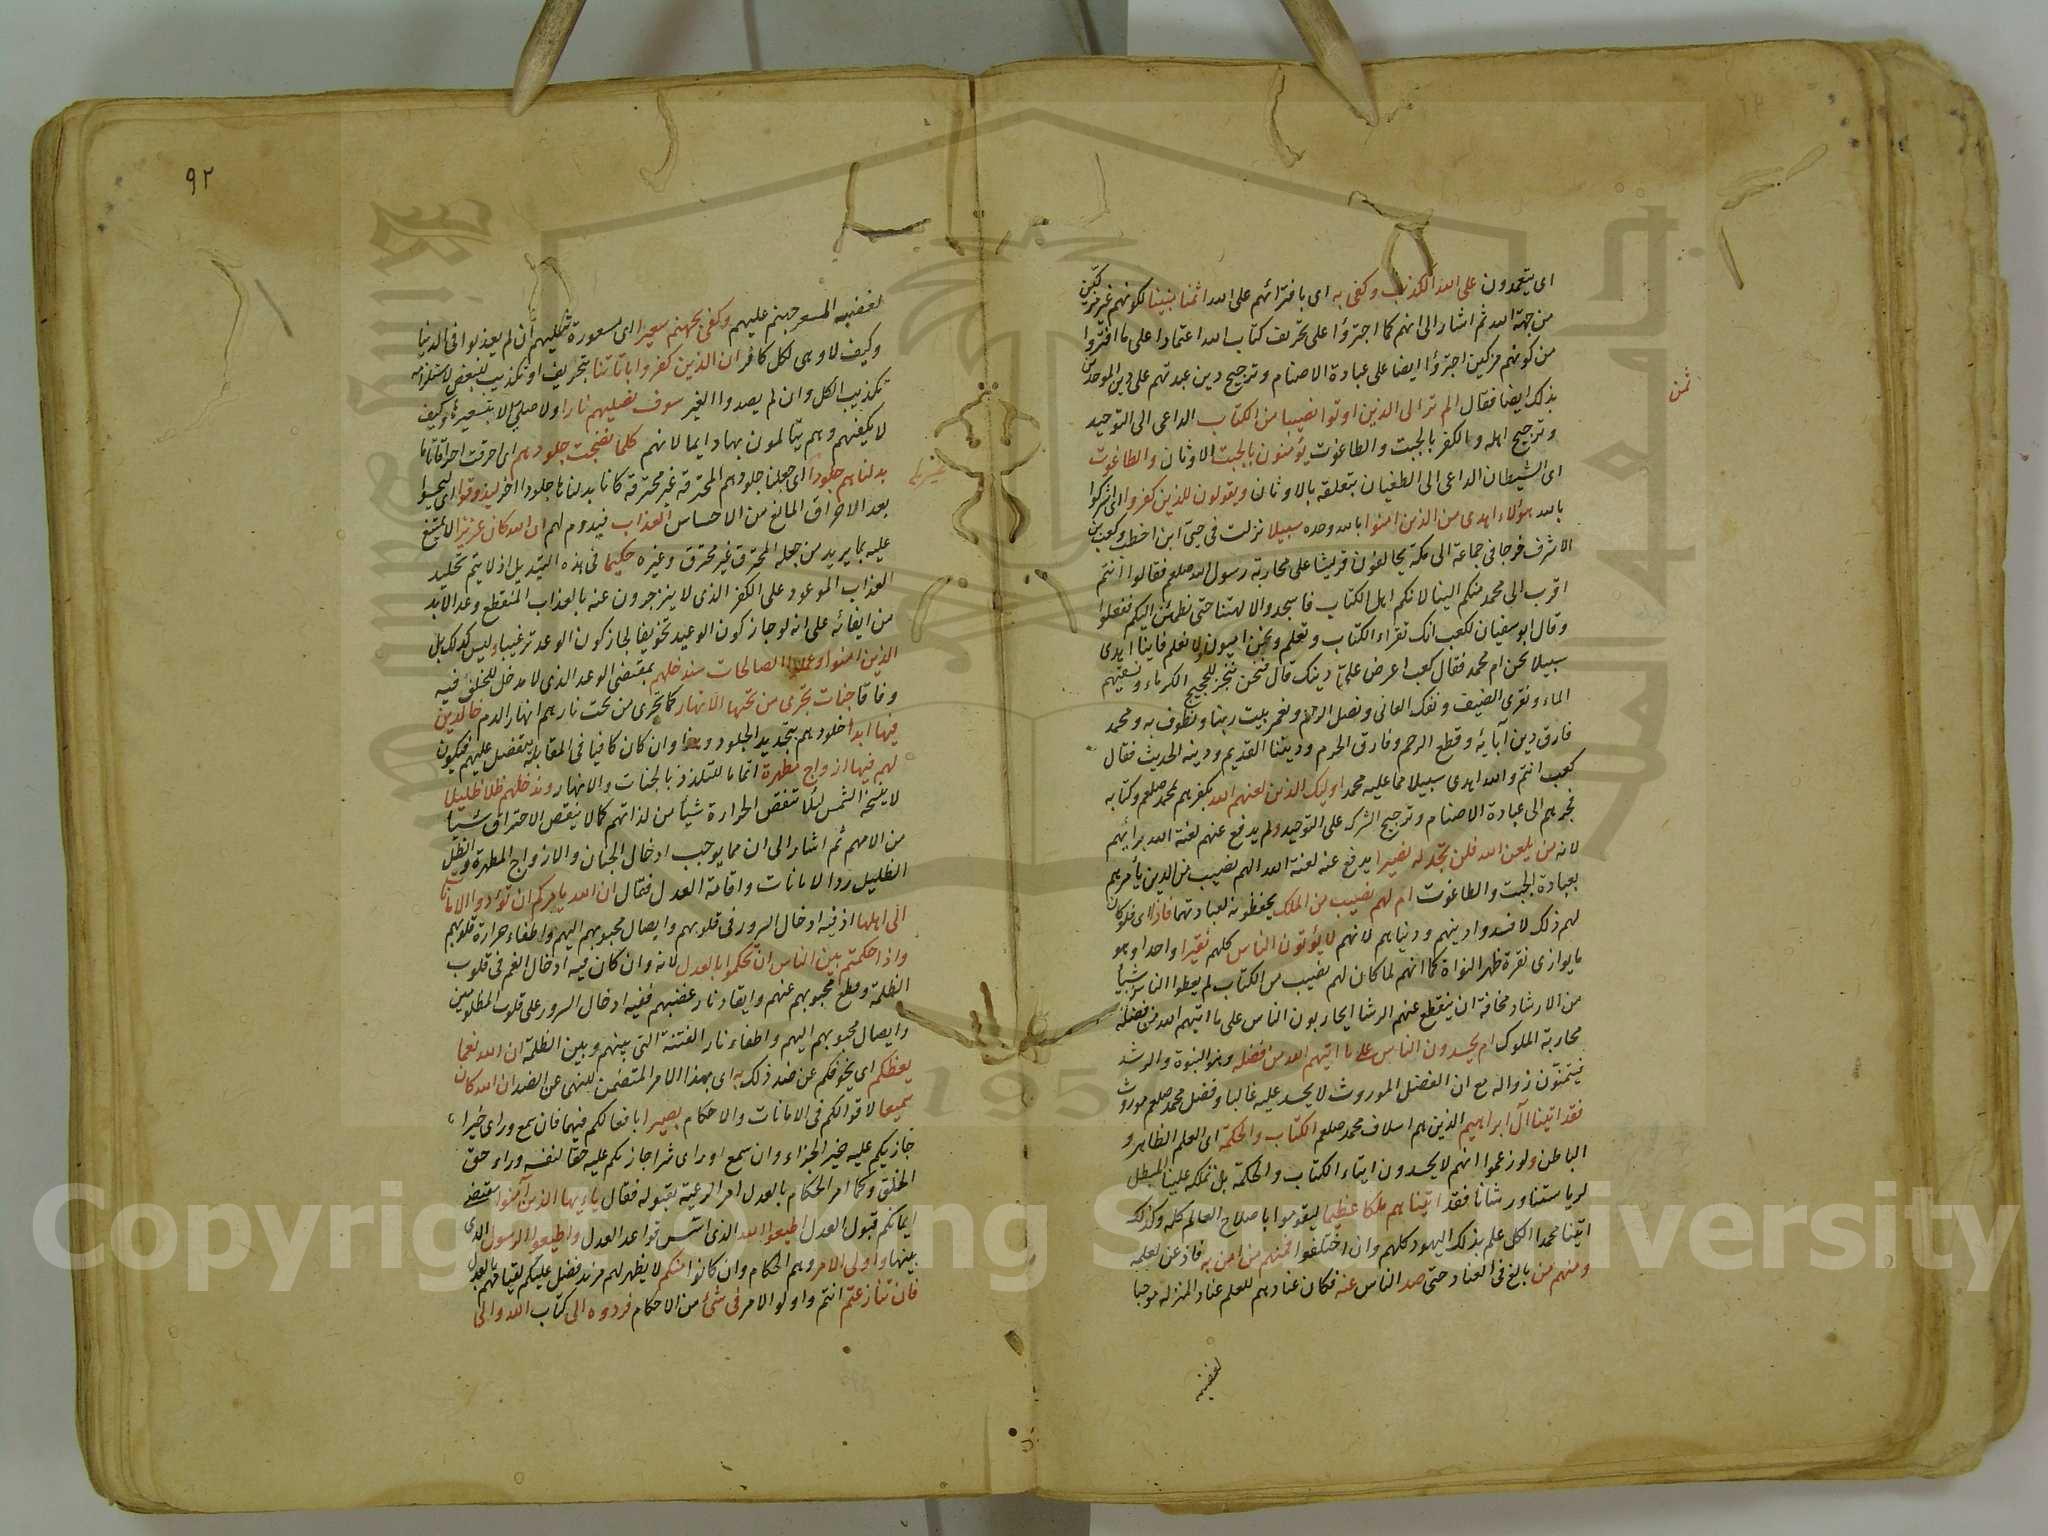 اى يتعمدون على الله الكذب وكفى به اى بافترائهم على الله اثما مبينا لكونهم غير مزكين
من جهة الله ثم اشار الى انهم كما اجترؤا على تحريف كتاب الله اعتمادا على ما افتروا
من كونهم مزكين اجترؤا ايضا على عبادة الاصنام وترجيح دين عبدتهم على دين الموحدين
بذلك ايضا فقال الم تر الى الذين اوتوا نصيبا من الكتاب الداعى الى التوحيد
ثمن
وترجيح اهله والكفر بالجبت والطاغوت يؤمنون بالجبت الاوثان والطاغوت
اى الشيطان الداعى الى الطغيان بتعلقه بالاوثان ويقولون للذين كفروا اى اشركوا
بالله هؤلاء اهدى من الذين امنوا بالله وحده سبيلا نزلت فى حيى ابن اخطب وكعب بن
الاشرف خرجا فى جماعة الى مكة يحالفون قريشا على محاربة رسول الله صلعم فقالوا انتم
اقرب الى محمد منكم الينا لانكم اهل الكتاب فاسجدوا لالهتنا حتى نطمئن اليكم ففعلوا
وقال ابو سفيان لكعب انك تقراء الكتاب وتعلم ونحن اميون لا نعلم فاينا اهدى
سبيلا نحن ام محمد فقال كعب اعرض على دينك قال نحن ننحر للحجيج الكوماء ونسقيهم
الماء ونقرى الضيف ونفك العانى ونصل الرحم ونعمر بيت ربنا ونطوف به ومحمد
فارق دين آبائه وقطع الرحم وفارق الحرم وديننا القديم ودينه الحديث فقال
كعب انتم والله اهدى سبيلا مما عليه محمد اوليك الذين لعنهم الله بكفرهم بمحمد صلعم وكتابه
فجرهم الى عبادة الاصنام وترجيح الشرك على التوحيد ولم يدفع عنهم لعنة الله برائيهم
لانه من يلعن الله فلن تجد له نصيرا يدفع عنه لعنة الله الهم نصيب من الدين يأمرهم
بعبادة الجبت والطاغوت ام لهم نصيب من الملك يحفظونه لعبادتهما فاذا اى فلو كان
لهم ذلك لافسدوا دينهم ودنياهم لانهم لا يؤتون الناس كلهم نقيرا واحدا وهو
ما يوازى نقرة ظهر النواة كما انهم لما كان لهم نصيب من الكتاب لم يعطوا الناس شيأ
من الارشاد مخافة ان ينقطع عنهم الرشا ايحاربون الناس على ما اتيهم الله من فضله
محاربة الملوك ام يحسدون الناس على ما اتيهم الله من فضله وهو النبوة والرشد
فيتمنون زواله مع ان الفضل الموروث لا يحسد عليه غالبا وفضل محمد صلعم موروث
فقد اتينا آل ابراهيم الذين هم اسلاف محمد صلعم الكتاب والحكمة اى العلم الظاهر و
الباطن ولو زعموا انهم لا يحسدون ايتاء الكتاب والحكمة بل تملكه علينا المبطل
لرياستنا ورشانا فقد اتيناهم ملكا عظيما ليقوموا باصلاح العالم كله وكذلك
اتينا محمدا الكل علم بذلك اليهود كلهم وان اختلفوا فمنهم من امن به فاذعن لعلمه
ومنهم من بالغ فى العناد حتى صد الناس عنه فكان عنادهم للعلم عناد المنزله موجبا
لغضبه
٩٢
لغضبه المسعر جهنم عليهم وكفى بجهنم سعيرا اى مسعورة عليهم ان لم يعذبوا فى الدنيا
وكيف لا وهى لكل كافر ان الذين كفروا باياتنا بتحريف او تكذيب للبعض لاستلزامه
تكذيب الكل وان لم يصدوا الغير سوف نصليهم نارا ولا صلى الا بتسعير وكيف
لا يكفيهم وهم يتالمون بها دايما لانهم كلما نضجت جلودهم اى احرقت احراقا تاما
بدلناهم جلودا اى جعلنا جلودهم المحترقة غير محترقة كانا بدلناها جلودا اخر ليذوقوا اى ليحسوا
غيرها
بعد الاحراق المانع من الاحساس العذاب فيدوم لهم ان الله كان عزيزا لا يمتنع
عليه بما يريد من جعله المحترق غير محترق وغيره حكيما فى هذه التبديل اذ لا يتم تخليد
العذاب الموعود على الكفر الذى لا ينزجرون عنه بالعذاب المنقطع وعد الابد
من ايفائه على انه لو جاز كون الوعيد تخويفا لجاز كون الوعد ترغيبا وليس كذلك بل
الذين امنوا وعملوا الصالحات سندخلهم بمقتضى الوعد الذى لا مدخل للخلف فيه
وفاقا جنات تجرى من تحتها الانهار كما تجرى من تحت نارهم انهار الدم خالدين
فيها ابدا خلودهم بتجديد الجلود وهذا وان كان كافيا فى المقابلة يتفضل عليهم فيكون
لهم فيها ازواج مطهرة اتماما للتلذذ بالجنات والانهار وندخلهم ظلا ظليلا
لا ينسخه الشمس لئلا تنقص الحرارة شيأ من لذاتهم كما لا ينقص الاحتراق شيأ
من الامهم ثم اشار الى ان مما يوجب ادخال الجنان والازواج المطهرة والظل
الظليل رد الامانات واقامة العدل فقال ان الله يامركم ان تؤدوا الامانات
الى اهلها اذ فيه ادخال السرور فى قلوبهم وايصال محبوبهم اليهم واطفاء حرارة قلوبهم
واذا حكمتم بين الناس ان تحكموا بالعدل لانه وان كان فيه ادخال الغم فى قلوب
الظلمة وقطع محبوبهم عنهم وايقاد نار غضبهم ففيه ادخال السرور على قلوب المظلومين
وايصال محبوبهم اليهم واطفاء نار الفتنة التى بينهم وبين الظلمة ان الله نعما
يعظكم اى يخوفكم عن ضد ذلك به اى بهذا الامر المتضمن للنهى عن الضد ان الله كان
سميعا لاقوالكم فى الامانات والاحكام بصيرا بافعالكم فيهما فان سمع وراى خيرا
جازيكم عليه خير الجزاء وان سمع او راى شرا جازيكم عليه حقا لنفسه وراء حق
الخلق وكما امر الحكام بالعدل امر الرعية بقبوله فقال يا ايها الذين آمنوا مقتضى
ايمانكم قبول العدل اطيعوا الله الذى اسس قواعد العدل واطيعوا الرسول الذى
بينها واولى الامر وهم الحكام وان كانوا منكم لا يظهر لهم مزيد فضل عليكم لقيامهم بالعدل
فان تنازعتم انتم واولو الامر فى شئ من الاحكام فردوه الى كتاب الله والى
Copyright © King Saud University
1957